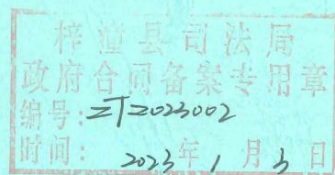 梓潼县司法局
政府合同备案专用章
编号：ZTZ023002
时间：2023年1月3日